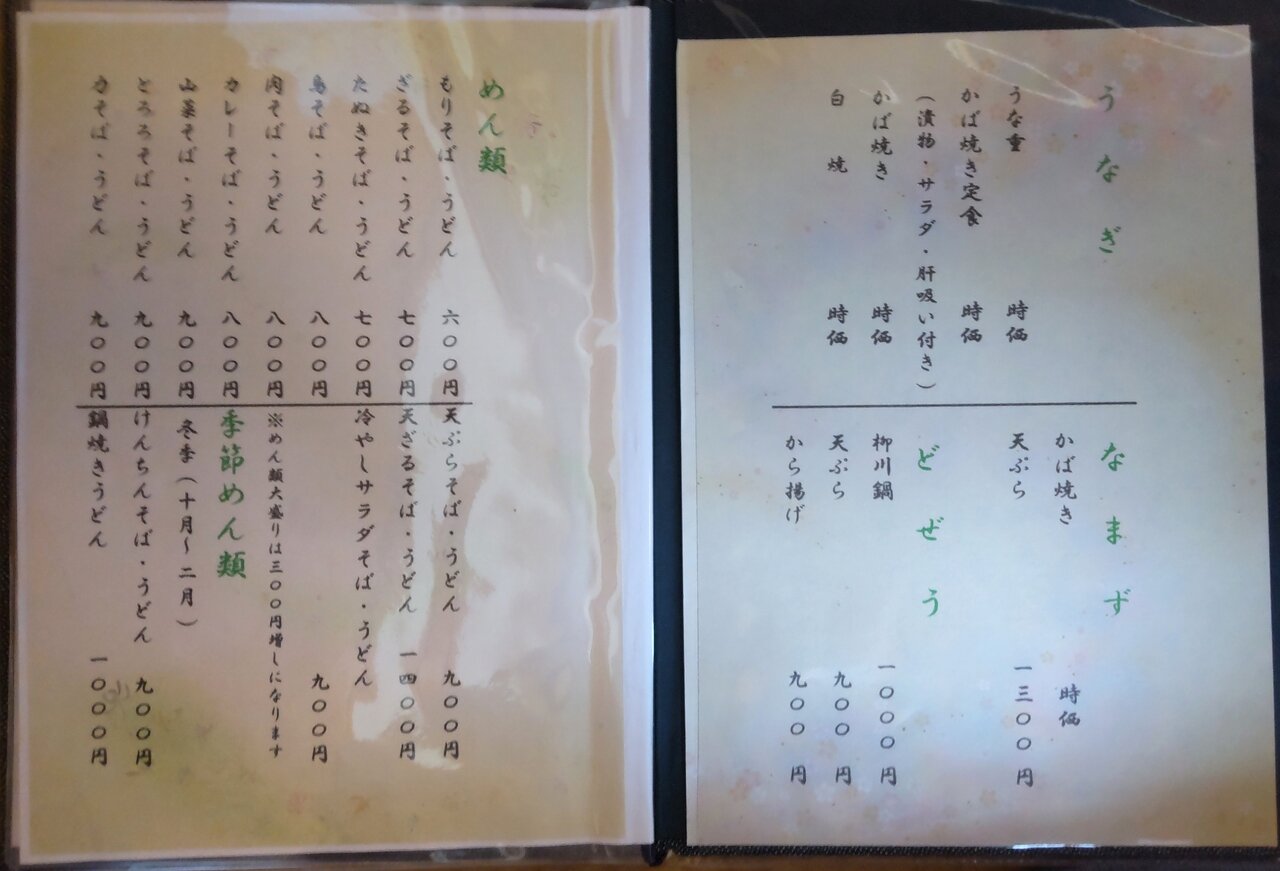 うなぎ
うな重 時価
かば焼き定食 時価
(漬物・サラダ・肝吸い付き)
かば焼き 時価
白 焼 時価
なまず
かば焼き 時価
天ぷら 一三〇〇円
どぜう
柳川鍋 一〇〇〇円
天ぷら 九〇〇円
から揚げ 九〇〇円
めん類
もりそば・うどん 六〇〇円
ざるそば・うどん 七〇〇円
たぬきそば・うどん 七〇〇円
鳥そば・うどん 八〇〇円
肉そば・うどん 八〇〇円
カレーそば・うどん 八〇〇円
山菜そば・うどん 九〇〇円
とろろそば・うどん 九〇〇円
力そば・うどん 九〇〇円
天ぷらそば・うどん 九〇〇円
天ざるそば・うどん 一四〇〇円
冷やしサラダそば・うどん
九〇〇円
※めん類大盛りは三〇〇円増しになります
季節めん類
冬季(十月～二月)
けんちんそば・うどん 九〇〇円
鍋焼きうどん 一〇〇〇円